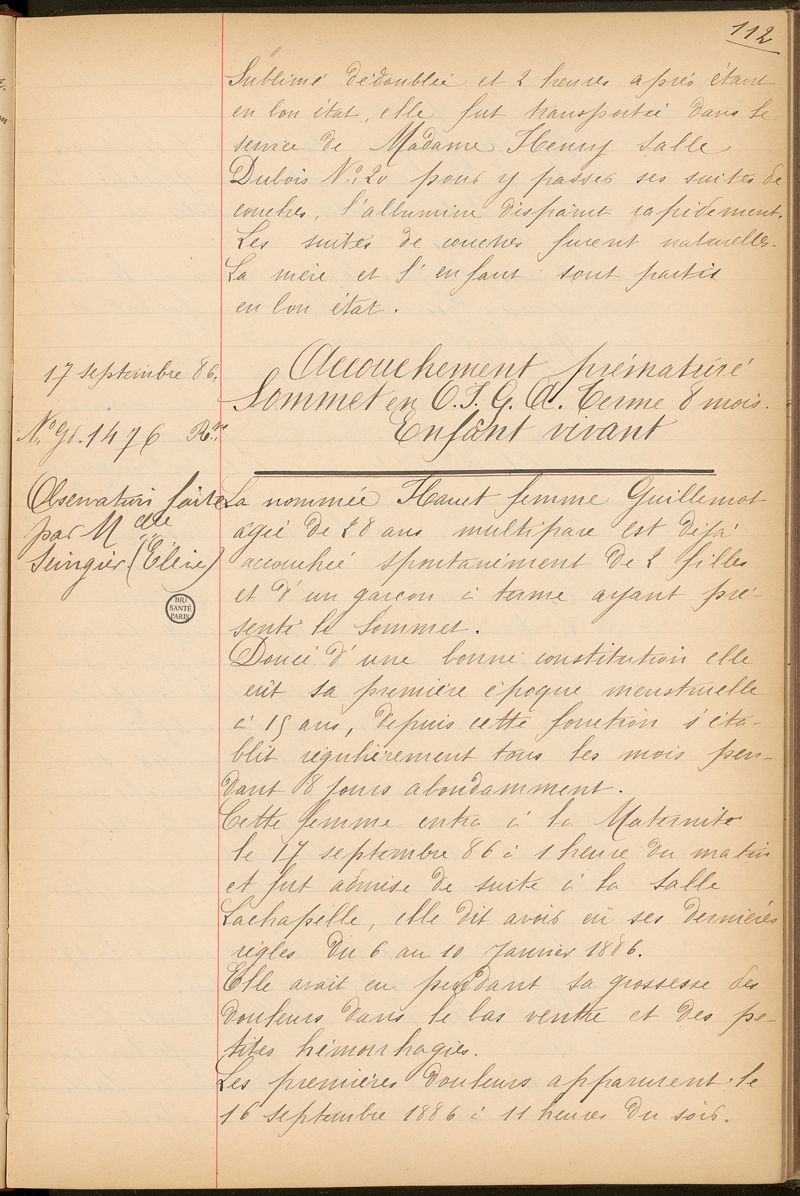 112
Sublimé dédoublée et 2 heures après étant
en bon état, elle fut transportée dans le
service de Madame Henry salle
Dubois N° 20 pour y passer ses suites de
couches, l'albumine disparut rapidement.
Les suites de couches furent naturelles.
La mère et l'enfant sont partis
en bon état.
17 septembre 86.
Accouchement prématuré
Sommet en O.I.G.A. Terme 8 mois.
N° Gl. 1476 Rre
Enfant vivant
Observation faite
par Mdlle
(Élève)
BIU
SANTÉ
PARIS
La nommée Hauet femme Guillemot
âgée de 28 ans multipare est déjà
accouchée spontanément de 2 filles
et d'un garçon à terme ayant pré-
senté le Sommet.
Douée d'une bonne constitution elle
eût sa première époque menstruelle
à 15 ans, depuis cette fonction s'éta-
blit régulièrement tous les mois pen-
dant 8 jours abondamment.
Cette femme entra à la Maternité
le 17 septembre 86 à 1 heure du matin
et fut admise de suite à la salle
Lachapelle, elle dit avoir eu ses dernières
règles du 6 au 10 Janvier 1886.
Elle avait eu pendant sa grossesse des
douleurs dans le bas ventre et des pe-
tites hémorrhagies.
Les premières douleurs apparurent le
16 septembre 1886 à 11 heures du soir.